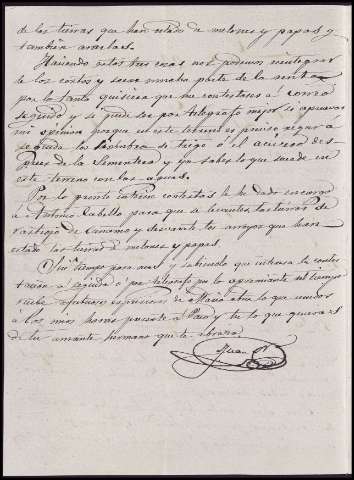 de las tierras que han estado de melones y papas y
tambien ararlas.
Haciendo estas tres cosas nos podemos reintegrar
de los costos y sacar mucha parte de la renta
por lo tanto quisiera que me contestases a correo
seguido y si puede ser por telegrafo mejor si apruevas
mi opinion porque en este tiempo es preciso regar a
seguida los de trigo ó el acaeceso des-
pues de la Sementera y ya sabes lo que sucede en
este terreno con las aguas.
Por lo pronto entrein contestas le he dado encargo
a Antonio Cubello para que a levantar las tierras de
rastrojo de Canamo y desvarate los arroyos que han
estado las tierras de melones y papas.
Sin tiempo para mas y sabiendo que interesa la contes-
tacion a seguida ó por telegrafo por lo apremiante del tiempo
recibe afectuosas espreciones de Maria otra lo que nuedas
á los mios honras pariente a Paco y tu lo que quieras
de tu amante hermano que te abraza
Juan